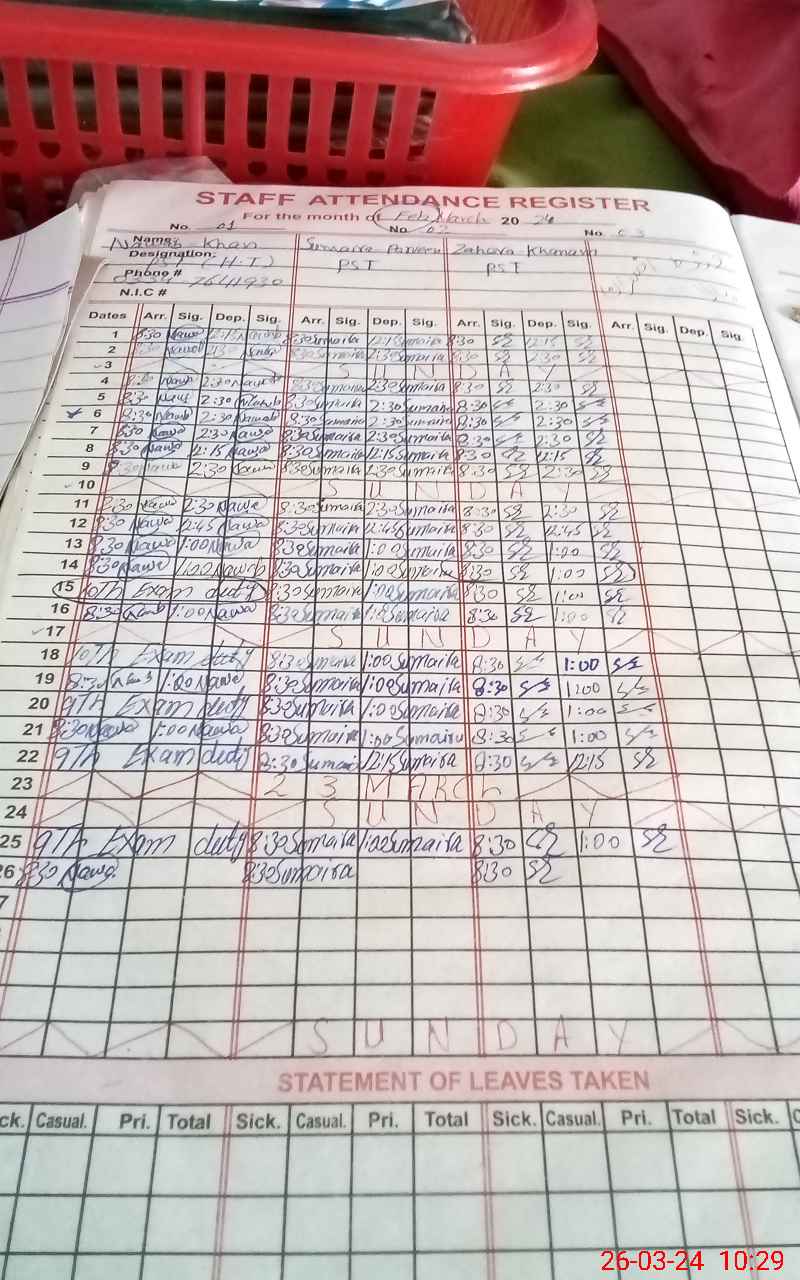 STAFF ATTENDANCE REGISTER
For the month of Feb March 20 24
No. 01 No. 02 No. 03
Name: Khan Sumaira Parveen Zahara Khanam
Designation: (H.T) PST PST
Phone #
N.I.C #
Dates Arr. Sig. Dep. Sig. Arr. Sig. Dep. Sig. Arr. Sig. Dep. Sig. Arr. Sig. Dep. Sig.
1 8:30 Nawab 12:15 Nawab 8:30 Sumaira 12:15 Sumaira 8:30 12:15
2 Nawab 2:30 Nawab 8:30 Sumaira 2:30 Sumaira 8:30 2:30
3 SUNDAY
4 8:30 Nawab 2:30 Nawab 8:30 Sumaira 2:30 Sumaira 8:30 2:30
5 8:30 Nawab 2:30 Nawab 8:30 Sumaira 2:30 Sumaira 8:30 2:30
6 8:30 Nawab 2:30 Nawab 8:30 Sumaira 2:30 Sumaira 8:30 2:30
7 8:30 Nawab 2:30 Nawab 8:30 Sumaira 2:30 Sumaira 8:30 2:30
8 8:30 Nawab 12:15 Nawab 8:30 Sumaira 12:15 Sumaira 8:30 12:15
9 8:30 Nawab 2:30 Nawab 8:30 Sumaira 2:30 Sumaira 8:30 2:30
10 SUNDAY
11 8:30 Nawab 2:30 Nawab 8:30 Sumaira 2:30 Sumaira 8:30 2:30
12 8:30 Nawab 12:45 Nawab 8:30 Sumaira 12:45 Sumaira 8:30 12:45
13 8:30 Nawab 1:00 Nawab 8:30 Sumaira 1:00 Sumaira 8:30 1:00
14 8:30 Nawab 1:00 Nawab 8:30 Sumaira 1:00 Sumaira 8:30 1:00
15 10Th Exam duty 8:30 Sumaira 1:00 Sumaira 8:30 1:00
16 8:30 Nawab 1:00 Nawab 8:30 Sumaira 1:00 Sumaira 8:30 1:00
17 SUNDAY
18 10Th Exam duty 8:30 Sumaira 1:00 Sumaira 8:30 1:00
19 8:30 Nawab 1:00 Nawab 8:30 Sumaira 1:00 Sumaira 8:30 1:00
20 9Th Exam duty 8:30 Sumaira 1:00 Sumaira 8:30 1:00
21 8:30 Nawab 1:00 Nawab 8:30 Sumaira 1:00 Sumaira 8:30 1:00
22 9Th Exam duty 8:30 Sumaira 12:15 Sumaira 8:30 12:15
23 23 MARCH
24 SUNDAY
25 9Th Exam duty 8:30 Sumaira 1:00 Sumaira 8:30 1:00
26 8:30 Nawab 8:30 Sumaira 8:30
SUNDAY
STATEMENT OF LEAVES TAKEN
Casual. Pri. Total Sick. Casual. Pri. Total Sick. Casual. Pri. Total Sick.
26-03-24 10:29